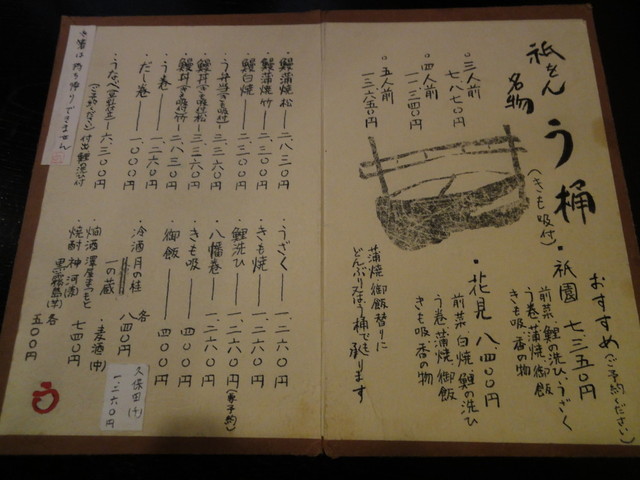 祇をん 名物 う桶(きも吸付)
○三人前 七、八七〇円
○四人前 一一、三四〇円
○五人前 一三、六五〇円
おすすめ(ご予約ください)
・祇園 七、三五〇円
前菜 鯉の洗ひ うざく
う巻 蒲焼 御飯
きも吸 香の物
・花見 八、四〇〇円
前菜 白焼 鯉の洗ひ
う巻 蒲焼 御飯
きも吸 香の物
蒲焼 御飯替りに
どんぶり又はう桶で承ります
・鰻蒲焼 松 二、八三〇円
・鰻蒲焼 竹 二、三〇〇円
・鰻白焼 二、八三〇円
・う弁当 きも吸付 三、三六〇円
・鰻丼 きも吸付 松 三、三六〇円
・鰻丼 きも吸付 竹 二、八三〇円
・う巻 一、二六〇円
・だし巻 一、〇〇〇円
・うなべ 六、三〇〇円
(ご予約ください) 付出 鯉の洗ひ付
・うざく 一、二六〇円
・きも焼 一、二六〇円
・鯉洗ひ 一、二六〇円
・八幡巻 一、二六〇円(要予約)
・きも吸 四〇〇円
・御飯 四〇〇円
・冷酒 月の桂
一の蔵 各 八四〇円
久保田(千) 一、二六〇円
・麦酒(中) 七四〇円
・燗酒 澤屋まつもと
・焼酎 神の河(麦)
黒霧島(芋) 各 五〇〇円
お酒は持ち帰りできません
う